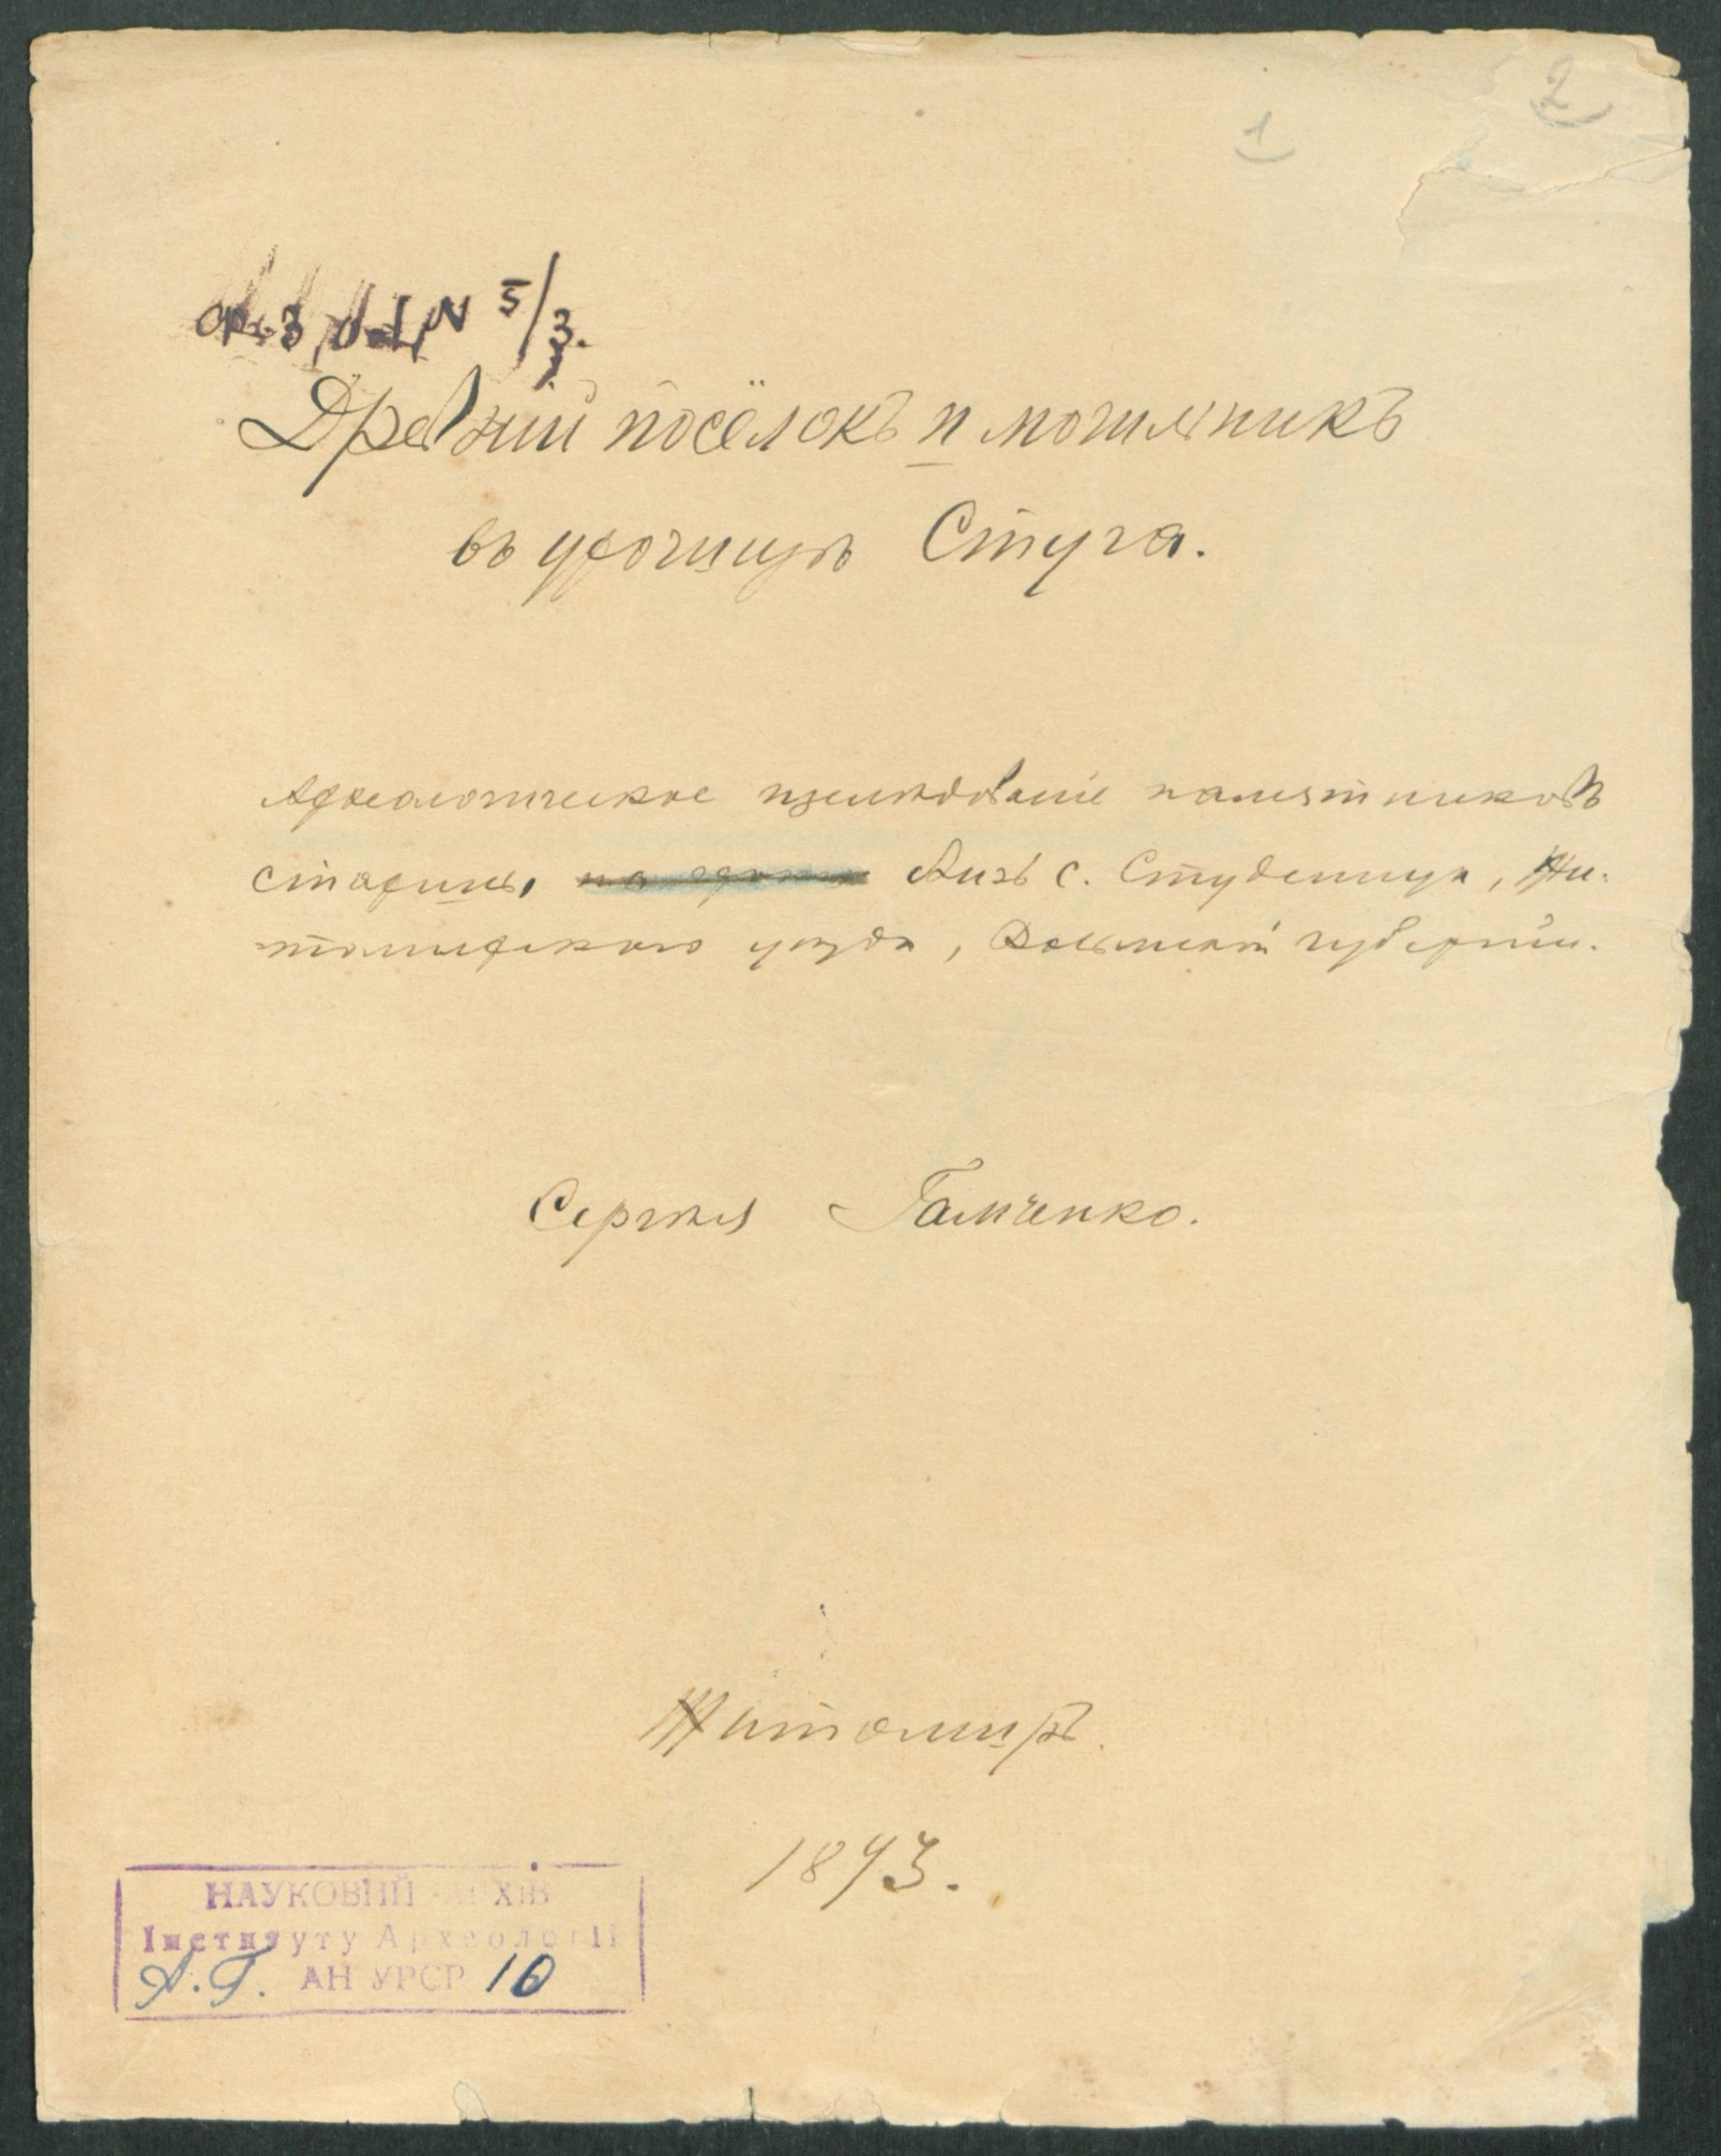 2
1
№ 5/3.
Древній посёлокъ и могильникъ
въ урочищѣ Стуга.
Археологическое изслѣдованіе памятниковъ
старины близъ с. Студеницы, Жи-
томирскаго уѣзда, Волынской губерніи.
Сергѣя Гамченко.
Житомиръ.
1893.
НАУКОВИЙ АРХІВ
Інституту Археології
А.Г. АН УРСР 10